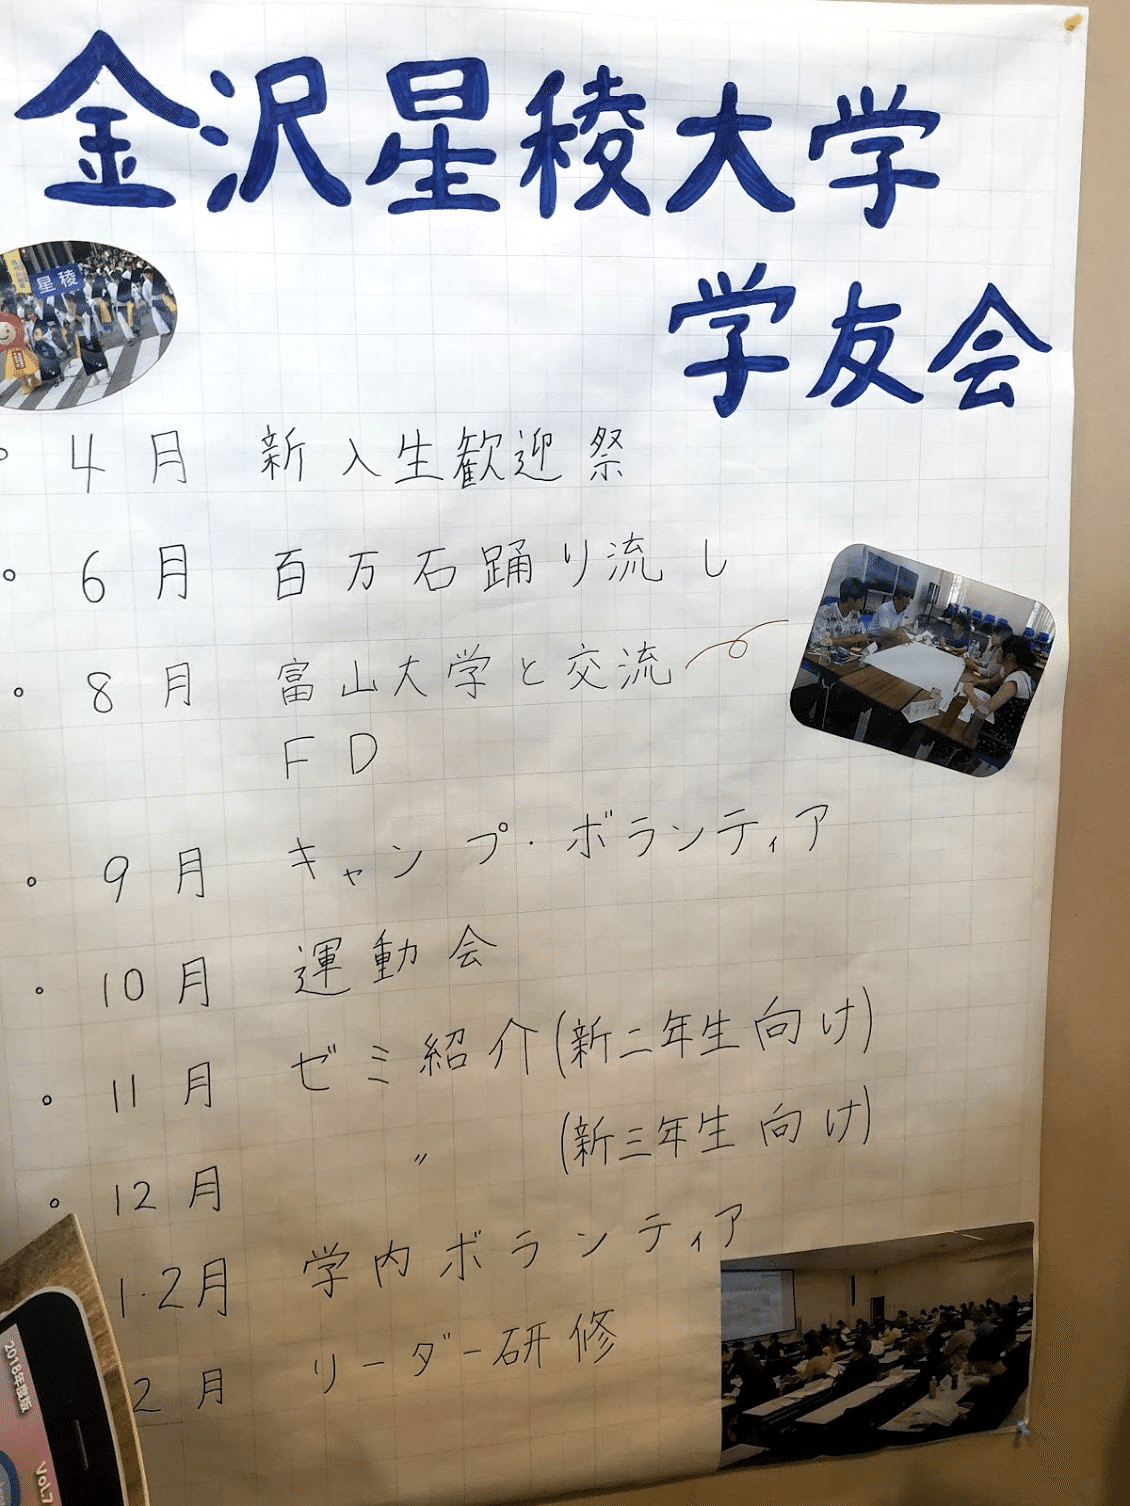 金沢星稜大学
学友会
星稜
○ 4月 新入生歓迎祭
○ 6月 百万石踊り流し
○ 8月 富山大学と交流
FD
○ 9月 キャンプ・ボランティア
○ 10月 運動会
○ 11月 ゼミ紹介(新二年生向け)
○ 12月 〃 (新三年生向け)
1・2月 学内ボランティア
2月 リーダー研修
2018年度版
Vol.7